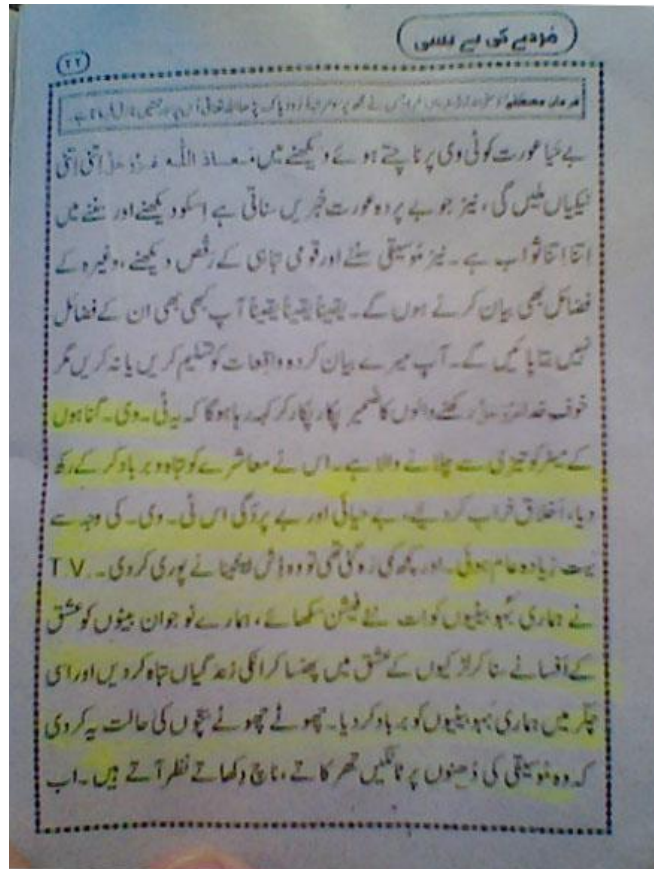 مُردے کی بے بسی
(۲۲)
فرمانِ مصطفٰے
بے حیا عورت کو ٹی وی پر ناچتے ہوئے دیکھنے میں مَعاذَ اللّٰہ عَزَّوَجَلَّ اتنی اتنی
نیکیاں ملیں گی، نیز جو بے پردہ عورت خبریں سناتی ہے اسکو دیکھنے اور سننے میں
اتنا اتنا ثواب ہے۔ نیز مُوسیقی سننے اور قومی تباہی کے رقص دیکھنے، وغیرہ کے
فضائل بھی بیان کرنے ہوں گے۔ یقیناً یقیناً یقیناً آپ کبھی بھی ان کے فضائل
نہیں بتا پائیں گے۔ آپ میرے بیان کردہ واقعات کو تسلیم کریں یا نہ کریں مگر
خوفِ خدا عَزَّوَجَلَّ رکھنے والوں کا ضمیر پکار پکار کر کہہ رہا ہوگا کہ یہ ٹی۔وی۔ گناہوں
کے میٹر کو تیزی سے چلانے والا ہے۔ اس نے معاشرے کو تباہ و برباد کر کے رکھ
دیا، اَخلاق خراب کر دیے، بے حیائی اور بے پردگی اس ٹی۔وی۔ کی وجہ سے
بہت زیادہ عام ہوئی۔ اور کچھ کمی رہ گئی تھی تو وہ ڈِش اینٹینا نے پوری کردی۔ T.V.
نے ہماری بہو بیٹیوں کو نت نئے فیشن سکھائے، ہمارے نوجوان بیٹوں کو عشق
کے اَفسانے سنا کر لڑکیوں کے عشق میں پھنسا کر انکی زندگیاں تباہ کردیں اور اسی
چکر میں ہماری بہو بیٹیوں کو برباد کردیا۔ چھوٹے چھوٹے بچّوں کی حالت یہ کردی
کہ وہ مُوسیقی کی دُھنوں پر ٹانگیں تھرکاتے، ناچ دکھاتے نظر آتے ہیں۔ اب